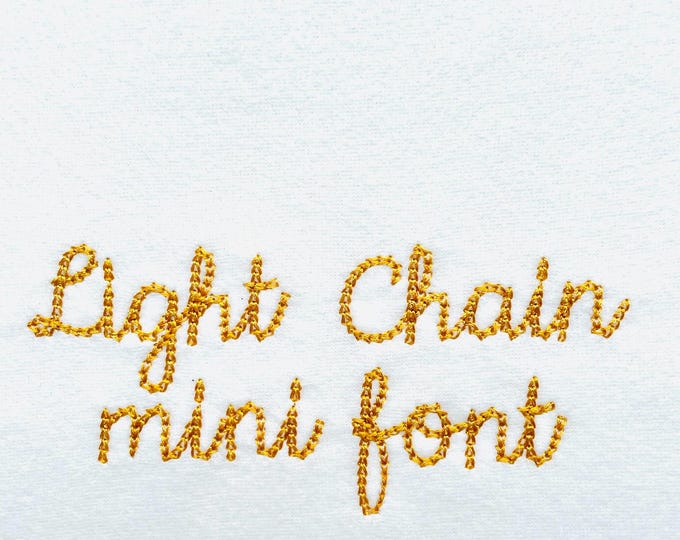 Light Chain
mini font